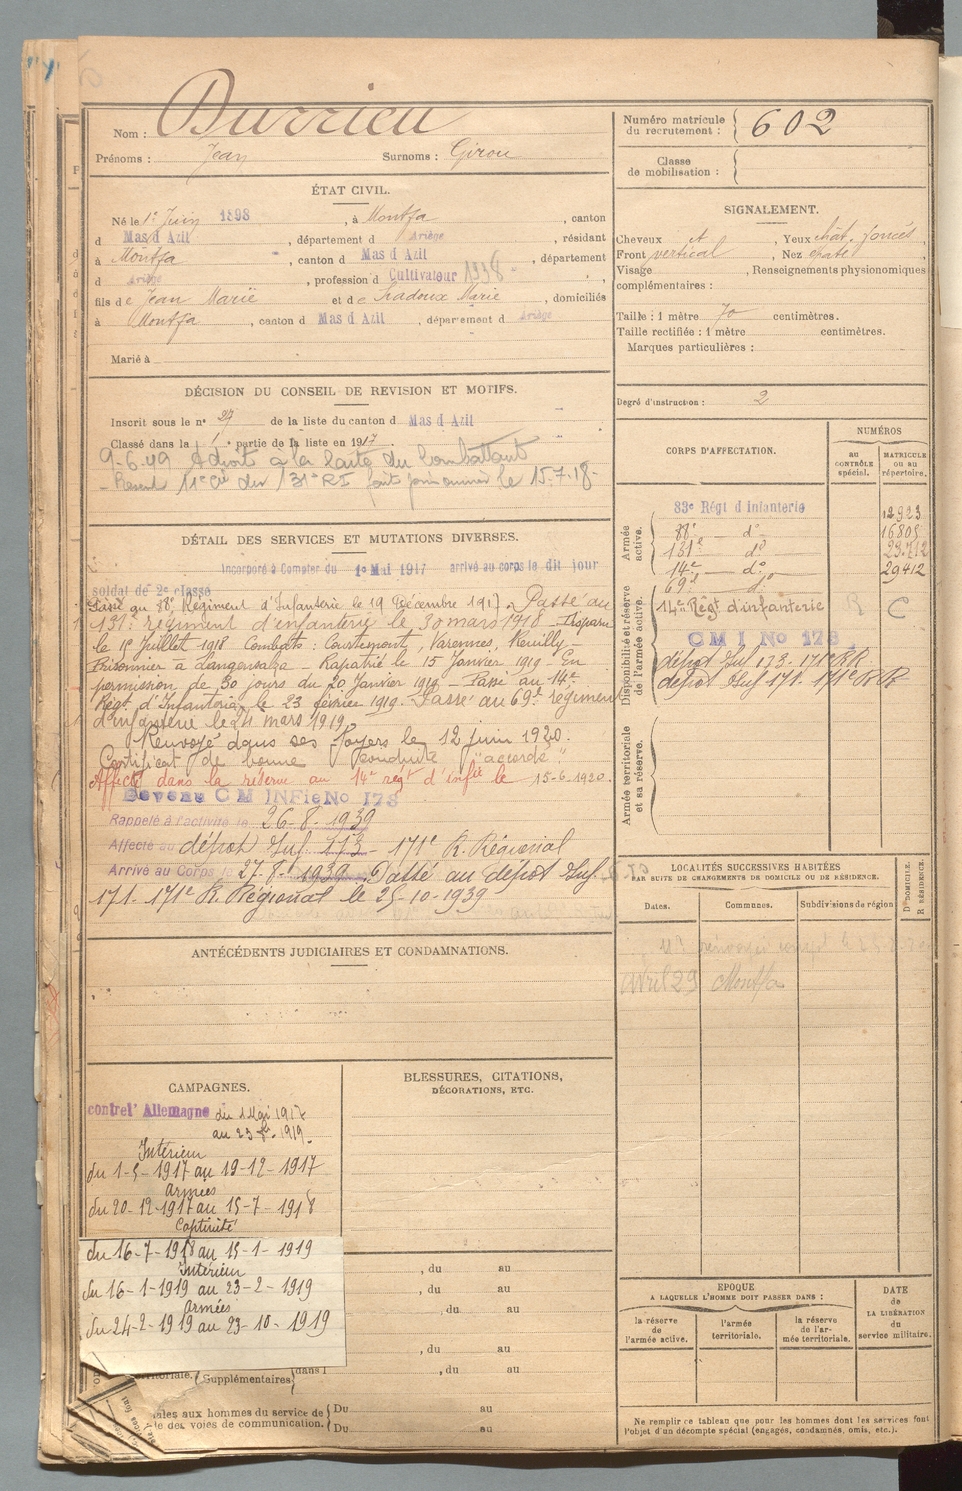 Nom : Durrieu
Prénoms : Jean Surnoms : Girou
Numéro matricule du recrutement : 602
Classe de mobilisation :
ÉTAT CIVIL.
Né le 1er Juin 1898, à Montfa, canton
d Mas d Azil, département d Ariège, résidant
à Montfa, canton d Mas d Azil, département
d Ariège, profession d Cultivateur
fils de Jean Marie et de Marie, domiciliés
à Montfa, canton d Mas d Azil, département d Ariège
Marié à
SIGNALEMENT.
Cheveux, Yeux chât. foncés
Front vertical, Nez épaté
Visage, Renseignements physionomiques
complémentaires :
Taille : 1 mètre 70 centimètres.
Taille rectifiée : 1 mètre centimètres.
Marques particulières :
Degré d'instruction : 2
DÉCISION DU CONSEIL DE REVISION ET MOTIFS.
Inscrit sous le n° 27 de la liste du canton d Mas d Azil
Classé dans la 1 e partie de la liste en 1917.
9-6-49 à la carte du Combattant
11e Cie du 131e RI fait prisonnier le 15-7-18-
DÉTAIL DES SERVICES ET MUTATIONS DIVERSES.
Incorporé à Compter du 1er Mai 1917 arrivé au corps le dit jour
soldat de 2e classe
Passé au 88e Régiment d'Infanterie le 19 Décembre 1917. Passé au
131e régiment d'infanterie le 30 mars 1918 - Disparu
le 15 Juillet 1918 Combats : Courtemont, Varennes, Reuilly -
Prisonnier à Langensalza - Rapatrié le 15 Janvier 1919 - En
permission de 30 jours du 20 Janvier 1919 - Passé au 14e
Régt d'Infanterie le 23 février 1919. Passé au 69e régiment
d'infanterie le 24 mars 1919.
Renvoyé dans ses foyers le 12 juin 1920.
Certificat de bonne conduite "accordé".
Affecté dans la réserve au 14e régt d'infie le 15-6-1920.
Devenu C M INFie No 173
Rappelé à l'activité le 26-8-1939
Affecté au dépôt Inf 173 - 171e R. Régional
Arrivé au Corps le 27-8-1939. Passé au dépôt Inf.
171. 171e R. Régional le 25-10-1939
CORPS D'AFFECTATION.
NUMÉROS
AU CONTRÔLE spécial.
MATRICULE ou au répertoire.
Armée active.
83e Régt d Infanterie 12923
88e d° 16805
131e d°
14e d° 29412
69e d°
Disponibilité et réserve de l'armée active.
14e Régt d'infanterie C
C M I No 173
dépôt Inf 173 - 171e RR
dépôt Inf 171 - 171e RR
Armée territoriale et sa réserve.
LOCALITÉS SUCCESSIVES HABITÉES
PAR SUITE DE CHANGEMENTS DE DOMICILE OU DE RÉSIDENCE.
D DOMICILE.
R RÉSIDENCE.
Dates. Communes. Subdivisions de région
avril 29 Montfa
ANTÉCÉDENTS JUDICIAIRES ET CONDAMNATIONS.
CAMPAGNES.
contre l'Allemagne du 1 Mai 1917
au 23 1919.
Intérieur
du 1-5-1917 au 19-12-1917
Armées
du 20-12-1917 au 15-7-1918
Captivité
du 16-7-1918 au 15-1-1919
Intérieur
du 16-1-1919 au 23-2-1919
Armées
du 24-2-1919 au 23-10-1919
BLESSURES, CITATIONS,
DÉCORATIONS, ETC.
, du au
, du au
, du au
, du au
Supplémentaires dans l , du au
ales aux hommes du service de Du au
le des voies de communication. Du au
EPOQUE
A LAQUELLE L'HOMME DOIT PASSER DANS :
la réserve de l'armée active.
l'armée territoriale.
la réserve de l'armée territoriale.
DATE de LA LIBÉRATION du service militaire.
Ne remplir ce tableau que pour les hommes dont les services font
l'objet d'un décompte spécial (engagés, condamnés, omis, etc.).